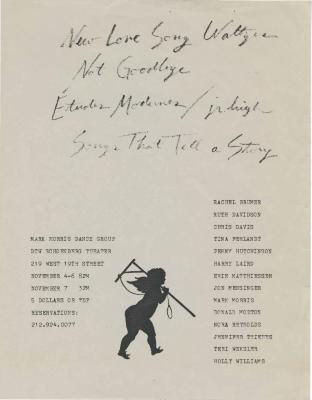 New Love Song Waltzes
Not Goodbye
Études Modernes / jr high
Songs That Tell a Story
MARK MORRIS DANCE GROUP
DTW SCHONBERG THEATER
219 WEST 19TH STREET
NOVEMBER 4-6 8PM
NOVEMBER 7 3PM
5 DOLLARS OR TDF
RESERVATIONS:
212.924.0077
RACHEL BRUMER
RUTH DAVIDSON
CHRIS DAVIS
TINA FEHLANDT
PENNY HUTCHINSON
HARRY LAIRD
ERIN MATTHIESSEN
JON MENSINGER
MARK MORRIS
DONALD MOUTON
NORA REYNOLDS
JENNIFER THIENES
TERI WEKSLER
HOLLY WILLIAMS